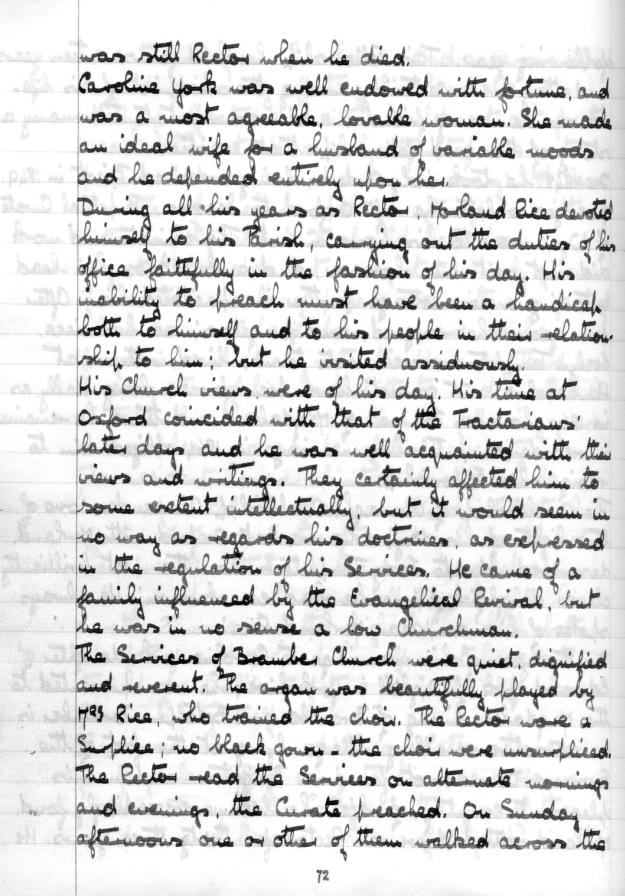 was still Rector when he died.
Caroline York was well endowed with fortune, and
was a most agreeable, lovable woman. She made
an ideal wife for a husband of variable moods
and he depended entirely upon her.
During all his years as Rector, Morland Rice devoted
himself to his Parish, carrying out the duties of his
office faithfully in the fashion of his day. His
inability to preach must have been a handicap
both to himself and to his people in their relation-
ship to him; but he visited assiduously.
His Church views were of his day. His time at
Oxford coincided with that of the Tractarians'
later days and he was well acquainted with their
views and writings. They certainly affected him to
some extent intellectually, but it would seem in
no way as regards his doctrines, as expressed
in the regulation of his Services. He came of a
family influenced by the Evangelical Revival, but
he was in no sense a low Churchman.
The Services of Bramber Church were quiet, dignified
and reverent. The organ was beautifully played by
Mrs Rice, who trained the choir. The Rector wore a
Surplice; no black gown - the choir were unsurpliced.
The Rector read the Services on alternate mornings
and evenings, the Curate preached. On Sunday
afternoons one or other of them walked across the
72